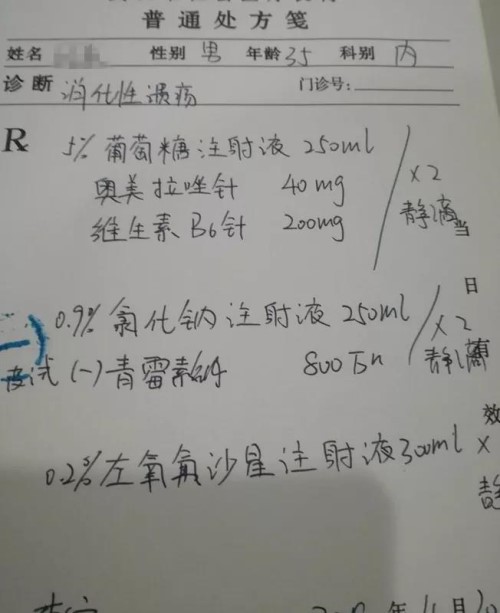 普通处方笺
姓名 性别 男 年龄 35 科别 内
诊断 消化性溃疡 门诊号:
R
5% 葡萄糖注射液 250ml
奥美拉唑针 40mg ×2
维生素B6针 200mg 静滴
当
日
0.9% 氯化钠注射液 250ml ×2
皮试(一)青霉素钠 800万u 静滴
有
效
0.2% 左氧氟沙星注射液 300ml ×
静